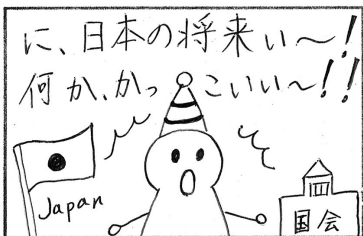 に、日本の将来い～!
何か、かっこいい～!!
Japan
国会